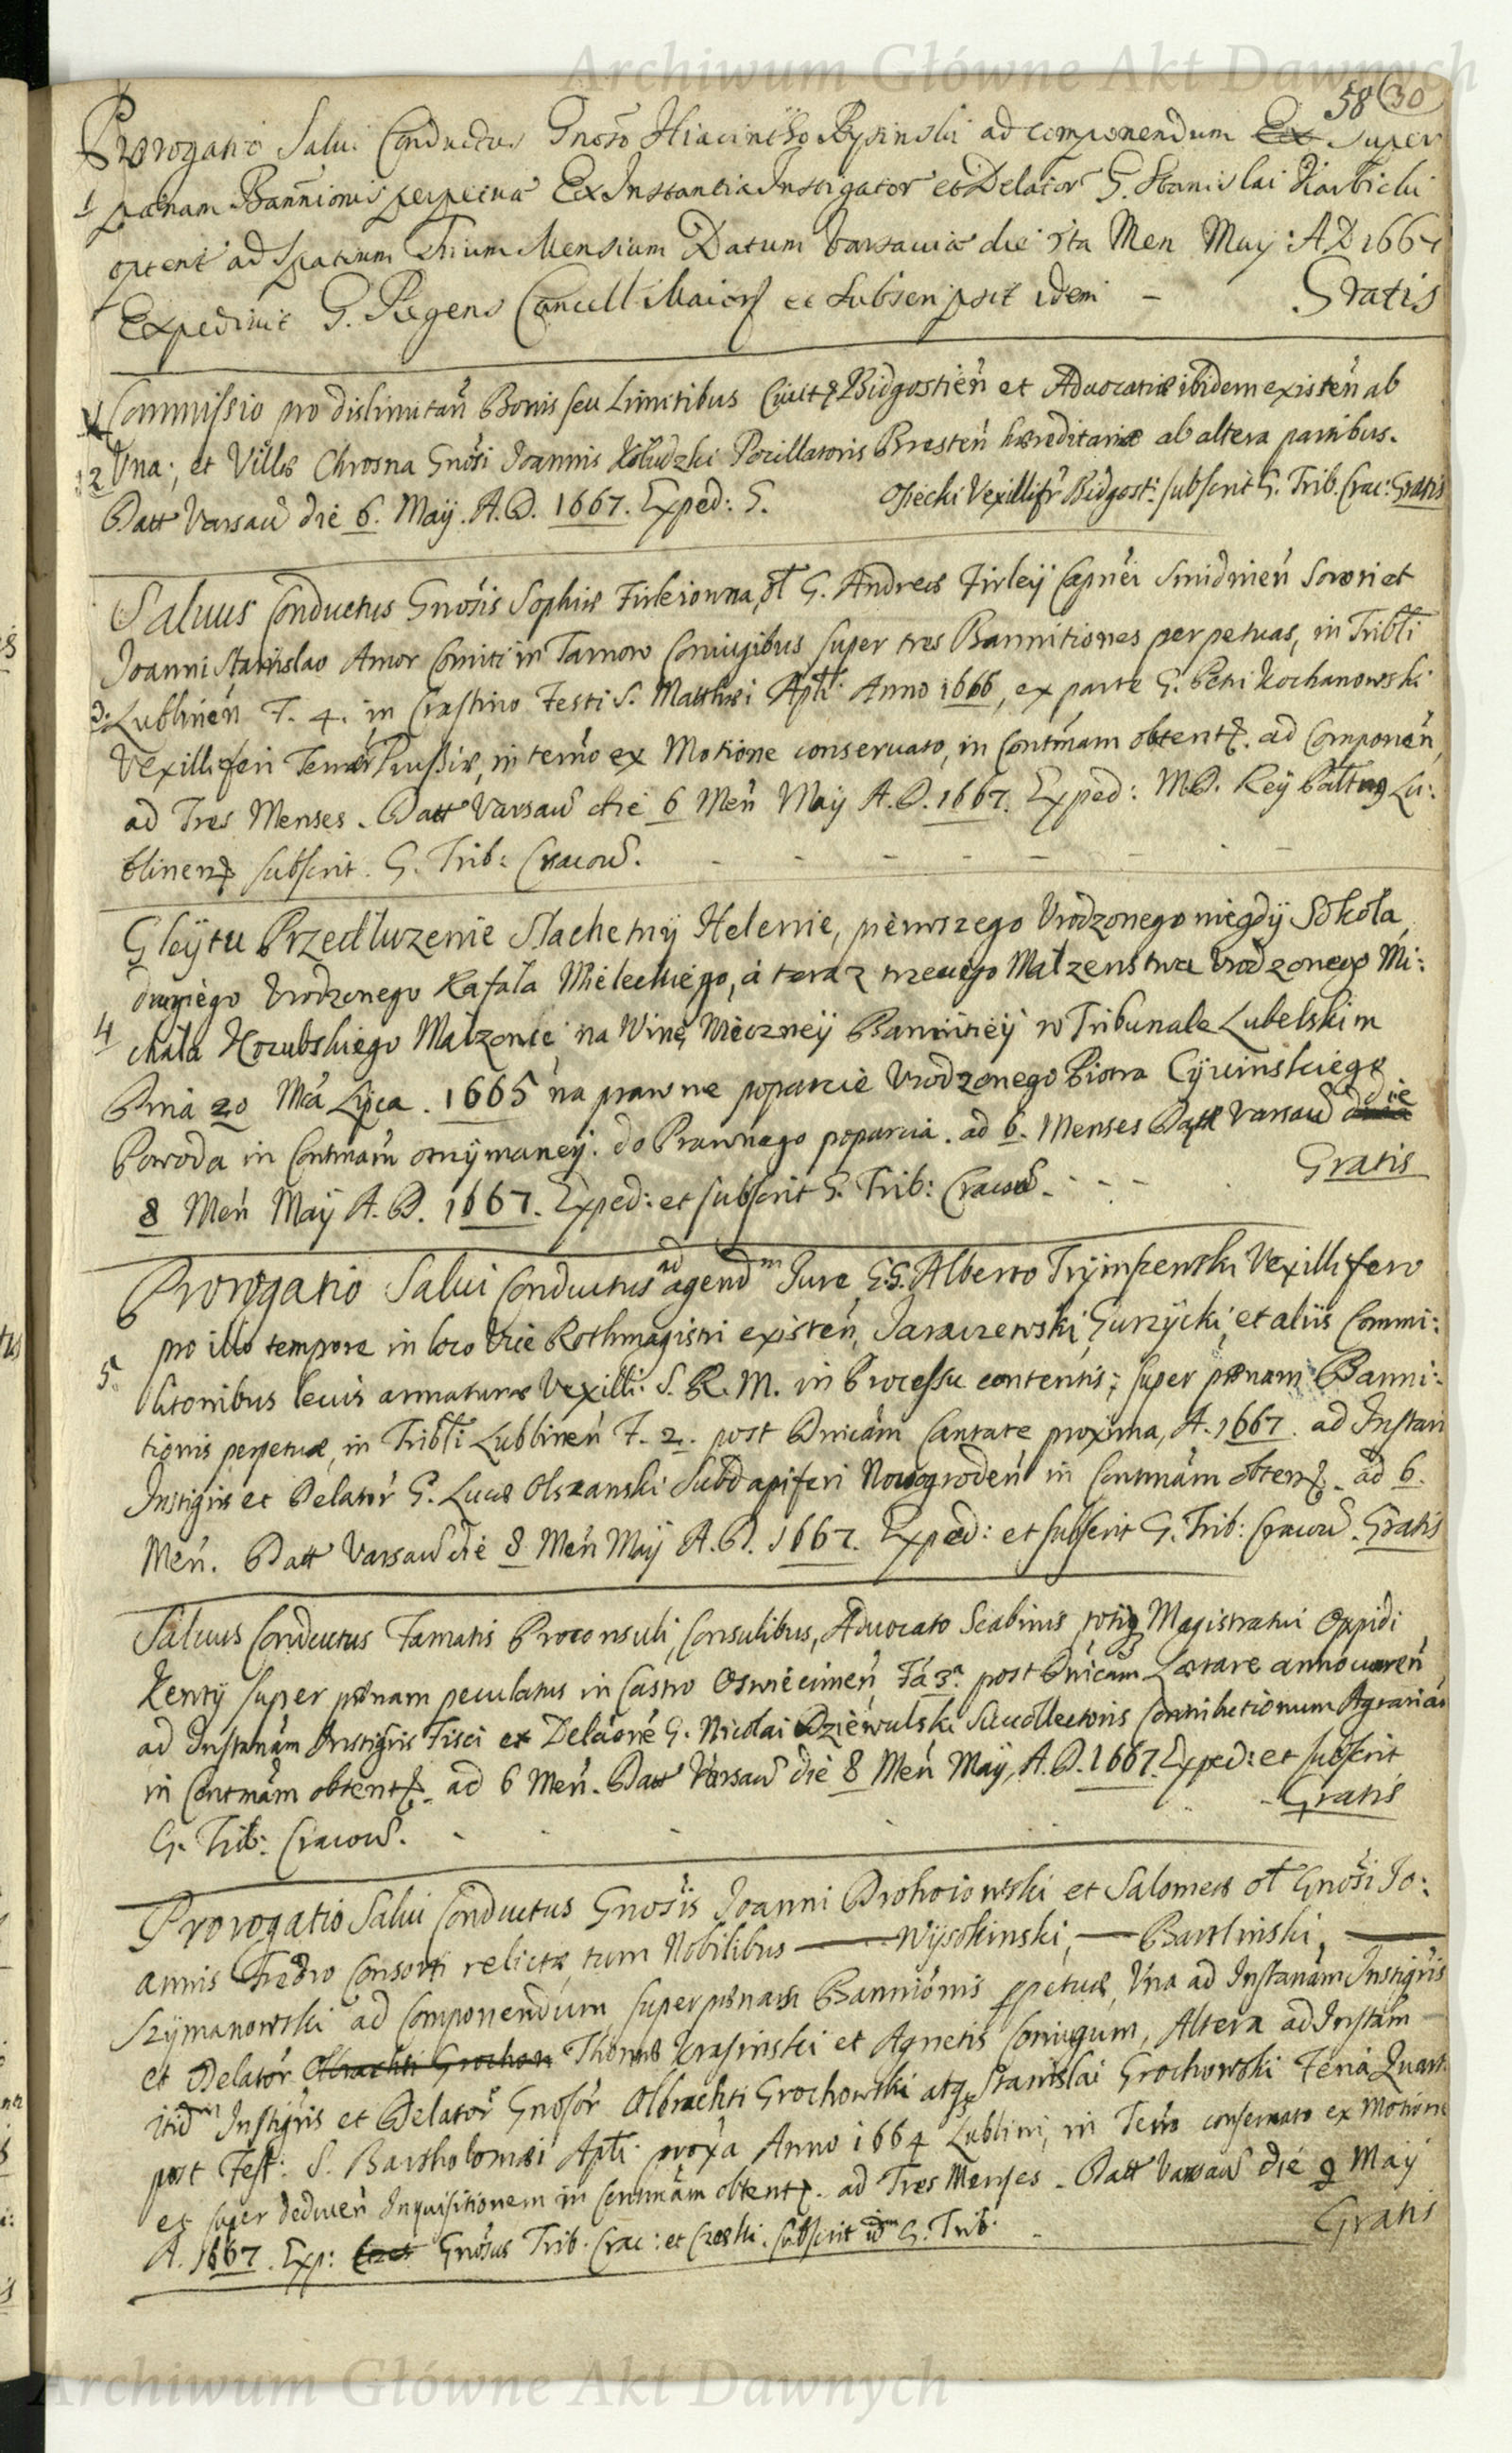 Archiwum Główne Akt Dawnych
58 30
Prorogatio Salui Conductus Gnoso Hiacintho Rysinski ad componendum Ex super
1 pœnam Bannionis perpetuæ Ex Instantia Instigator et Delator G. Stanislai Karbicki
optent ad Spatium Trium Mensium Datum Varsauiæ die 5ta Men May: A D 1667
Expediuit G. Regens Cancell Maiors et Subscripsit idem - Gratis
Commissio pro dislimitan Bonis seu Limitibus Ciuit Bidgostien et Aduocatiæ ibidem existen ab
2 Una; et Villæ Chrosna Gnosi Joannis Kołudzki Pocillatoris Bresten hæreditariæ ab altera partibus.
Datt Varsau die 6. Maÿ. A. D. 1667. Exped: G. Osiecki Vexillifr Bidgost: subscrit G. Trib. Crac: Gratis
Saluus Conductus Gnosis Sophiæ Firleiowna, ol G. Andreæ Firleÿ Capnei Smidinen Sorori et
Joanni Stanislao Amor Comiti in Tarnow Coniugibus super tres Bannitiones perpetuas, in Tribli
3. Lublinen F. 4. in Crastino Festi S. Matthæi Apli: Anno 1666, ex parte G. Petri Kochanowski
Vexilliferi Terrar Russiæ, in termo ex Motione conseruato, in Contmam obtent. ad Componen,
ad Tres Menses. Datt Varsau die 6 Men Maÿ A. D. 1667. Exped: M.D. Reÿ Paltng Lu:
blinen subscrit. G. Trib: Cracou. - - - - - - -
Gleÿtu Przedluzenie Slachetnÿ Helenie, pierwszego Vrodzonego niegdÿ Sokoła,
drugiego Vrodzonego Rafała Mieleckiego, á teraz trzeciego Małzenstwa Vrodzonego Mi:
4 chała Kozubskiego Małzonce, na Winę Wieczneÿ Banniiej w Tribunale Lubelskim
Dnia 20 Mca Lipca. 1665 na prawne poparcie Vrodzonego Piotra Cÿwinskiego
Powoda in Contmam otrzÿmaneÿ. do Prawnego poparcia. ad 6. Menses Datt Varsau die
8 Men Maÿ A. D. 1667. Exped: et subscrit G. Trib: Cracou. - - - Gratis
Prorogatio Salui Conductus ad agendm Jure G.G. Alberto Trÿmbzewski Vexillifero
pro illo tempore in loco Vice Rothmagistri existen, Jaraczewski, Gurzÿcki, et aliis Commi:
5. litonibus leuis armaturæ Vexilli: S. R. M. in Processu contentis; super pœnam Banni:
tionis perpetuæ, in Tribli Lublinen F. 2. post Dnicam Cantate proxima, A. 1667. ad Instan
Instigris et Delator G. Lucæ Olszanski Subdapiferi Nowogroden in Contmam obten. ad 6.
Men. Datt Varsau die 8 Men Maÿ A. D. 1667. Exped: et subscrit G. Trib: Cracou. Gratis
Saluus Conductus Famatis Proconsuli, Consulibus, Aduocato Scabinis totiq Magistratui Oppidi
Kentÿ super pœnam peculatus in Castro Oswiecimen Fa 3a post Dnicam Lætare anno curren
ad Instanam Instigris Fisci et Delaore G. Nicolai Dziewulski Succollectoris Contributionum Agrariar
in Contmam obtent. ad 6 Men. Datt Varsau die 8 Men Maÿ, A. D. 1667. Exped: et subscrit
G. Trib: Cracou. - - - - - - Gratis
Prorogatio Salui Conductus Gnosis Joanni Drohoiowski et Salomeæ ol Gnosi Jo:
annis Fredro Consorti relictæ, tum Nobilibus —— Wÿsokinski, —— Bartlinski, ——
Szÿmanowski ad Componendum, super pœnam Bannionis ppetuæ, Una ad Instanam Instigris
et Delator Olbrachti Grochow Thomæ Krasinski et Agnetis Coniugum, Altera ad Instam
itidm Instigris et Delator Gnosor Olbrachti Grochowski atq Stanislai Grochowski Feria Quart
post Fest: S. Bartholomæi Apli: proxa Anno 1664 Lublini, in Termo conseruato ex Motione
et super deducen Inquisitionem in Contmam obtent. ad Tres Menses. Datt Varsau die 9 Maÿ
A. 1667. Exp: Gnosus Trib. Crac: et Czeski. subscrit idm G. Trib. - Gratis
Archiwum Główne Akt Dawnych